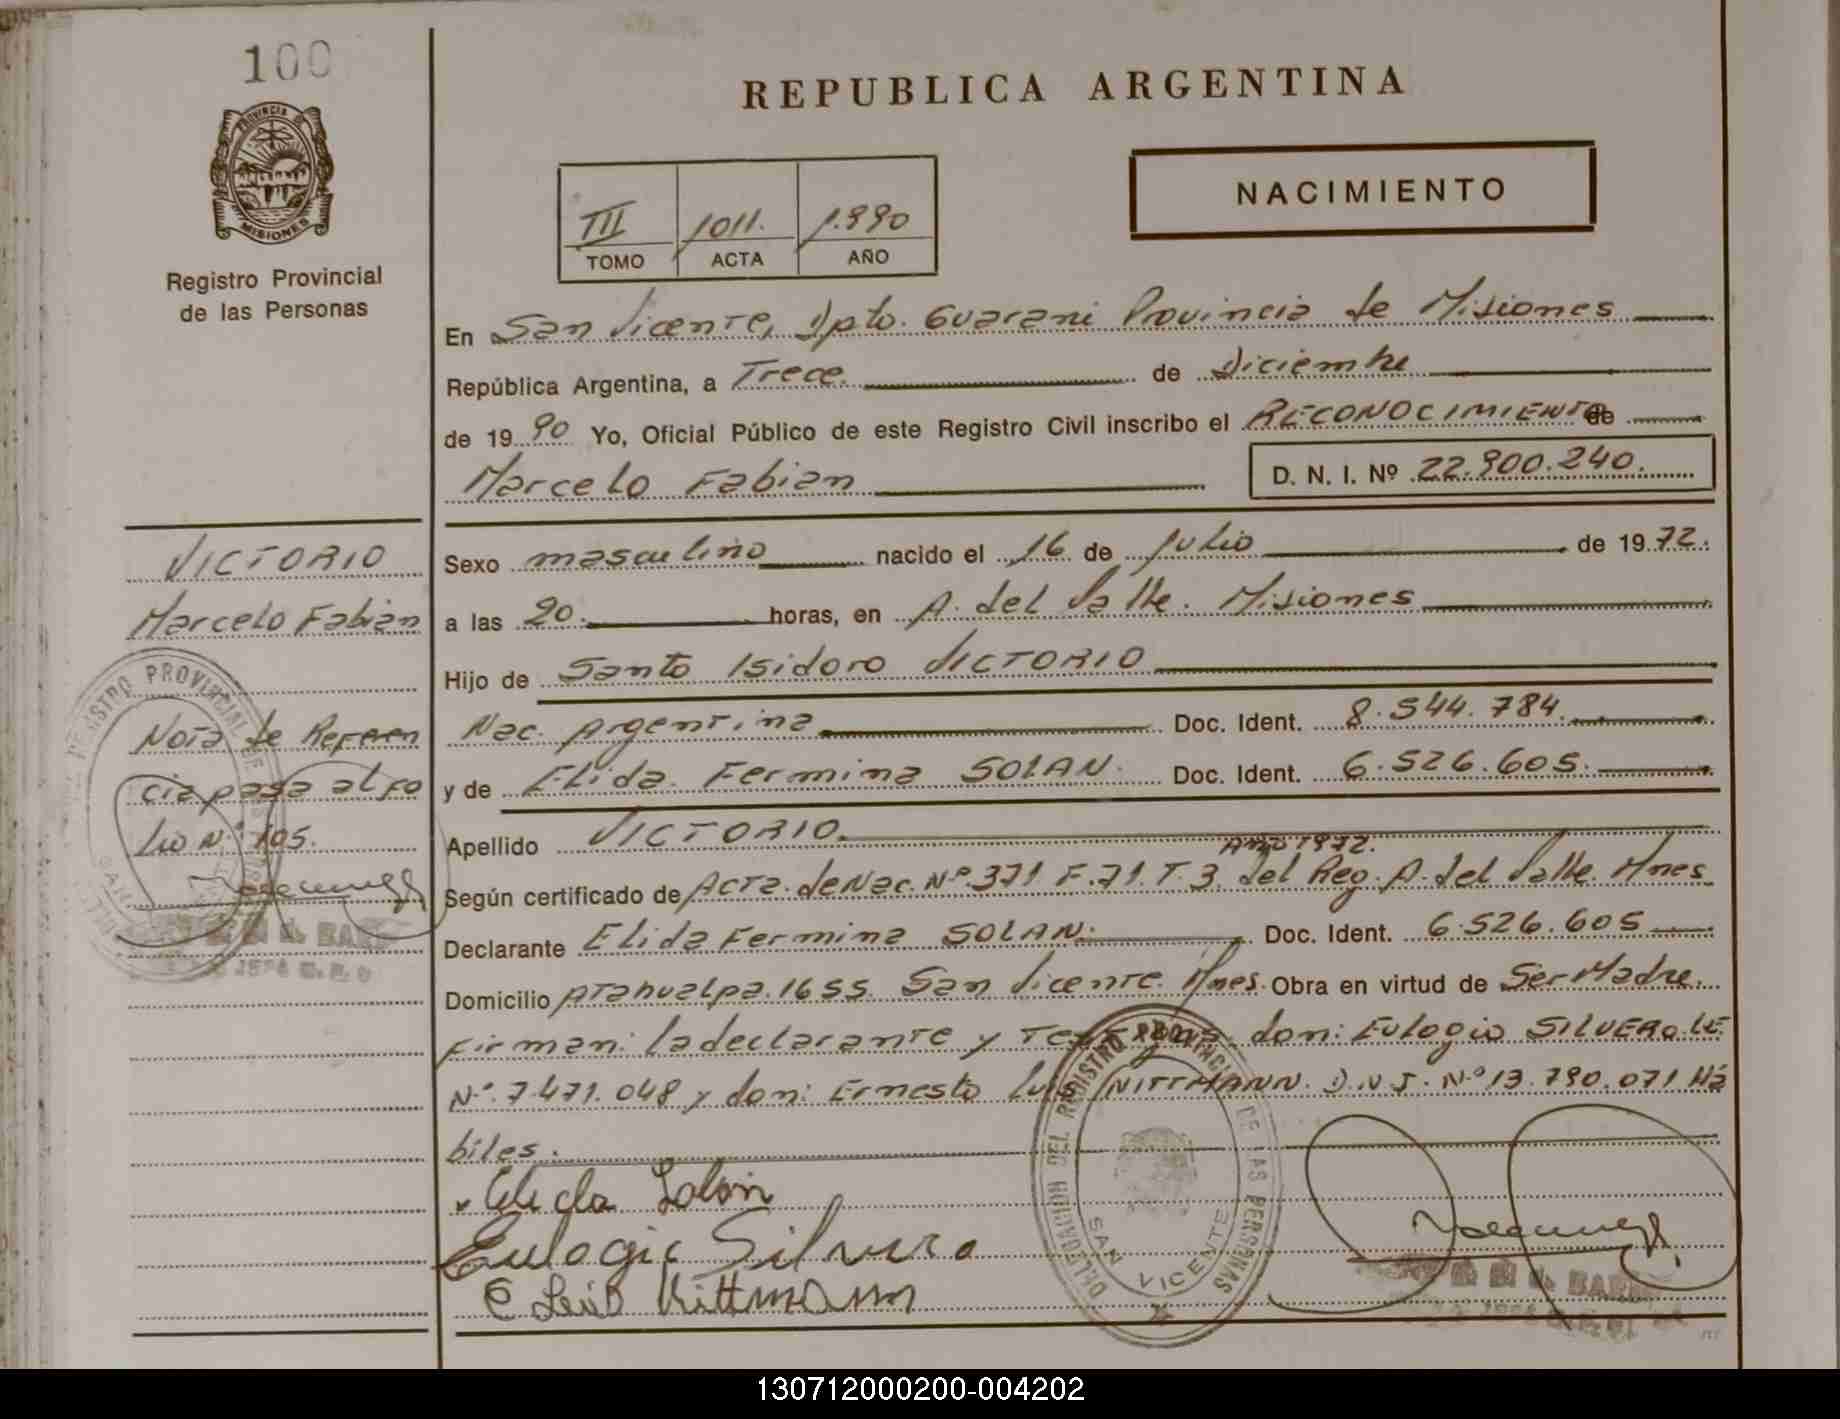 100
PROVINCIA DE
MISIONES
Registro Provincial
de las Personas
REPUBLICA ARGENTINA
NACIMIENTO
III 1011. 1.990
TOMO ACTA AÑO
En San Vicente, Dpto. Guarani Provincia de Misiones
República Argentina, a Trece. de Diciembre
de 1990 Yo, Oficial Público de este Registro Civil inscribo el RECONOCIMIENTO de
Marcelo Fabian D. N. I. Nº 22.900.240.
VICTORIO
Marcelo Fabian
Nota de Referen
cia pasa al fo
lio Nº 105.
Sexo masculino nacido el 16 de Julio de 1972.
a las 20. horas, en A. del Valle. Misiones
Hijo de Santo Isidoro VICTORIO
Nac. Argentina Doc. Ident. 8.544.784.
y de Elida. Fermina SOLAN. Doc. Ident. 6.526.605.
Apellido VICTORIO.
Año 1972.
Según certificado de Acta. de Nac. Nº 371 F.71. T.3. del Reg. A. del Valle. Mnes
Declarante Elida Fermina SOLAN. Doc. Ident. 6.526.605
Domicilio Atahualpa. 1655. San Vicente. Mnes. Obra en virtud de Ser Madre.
Firman: la declarante y Testigos don: Eulogio SILVERO LE
Nº. 7.471.048 y don: Ernesto Luis NITTMANN. D.N.I. Nº 13.790.071 Há
biles.
Elida Solan
Eulogio Silvero
DELEGACION DEL REGISTRO PROVINCIAL DE LAS PERSONAS
SAN VICENTE
130712000200-004202